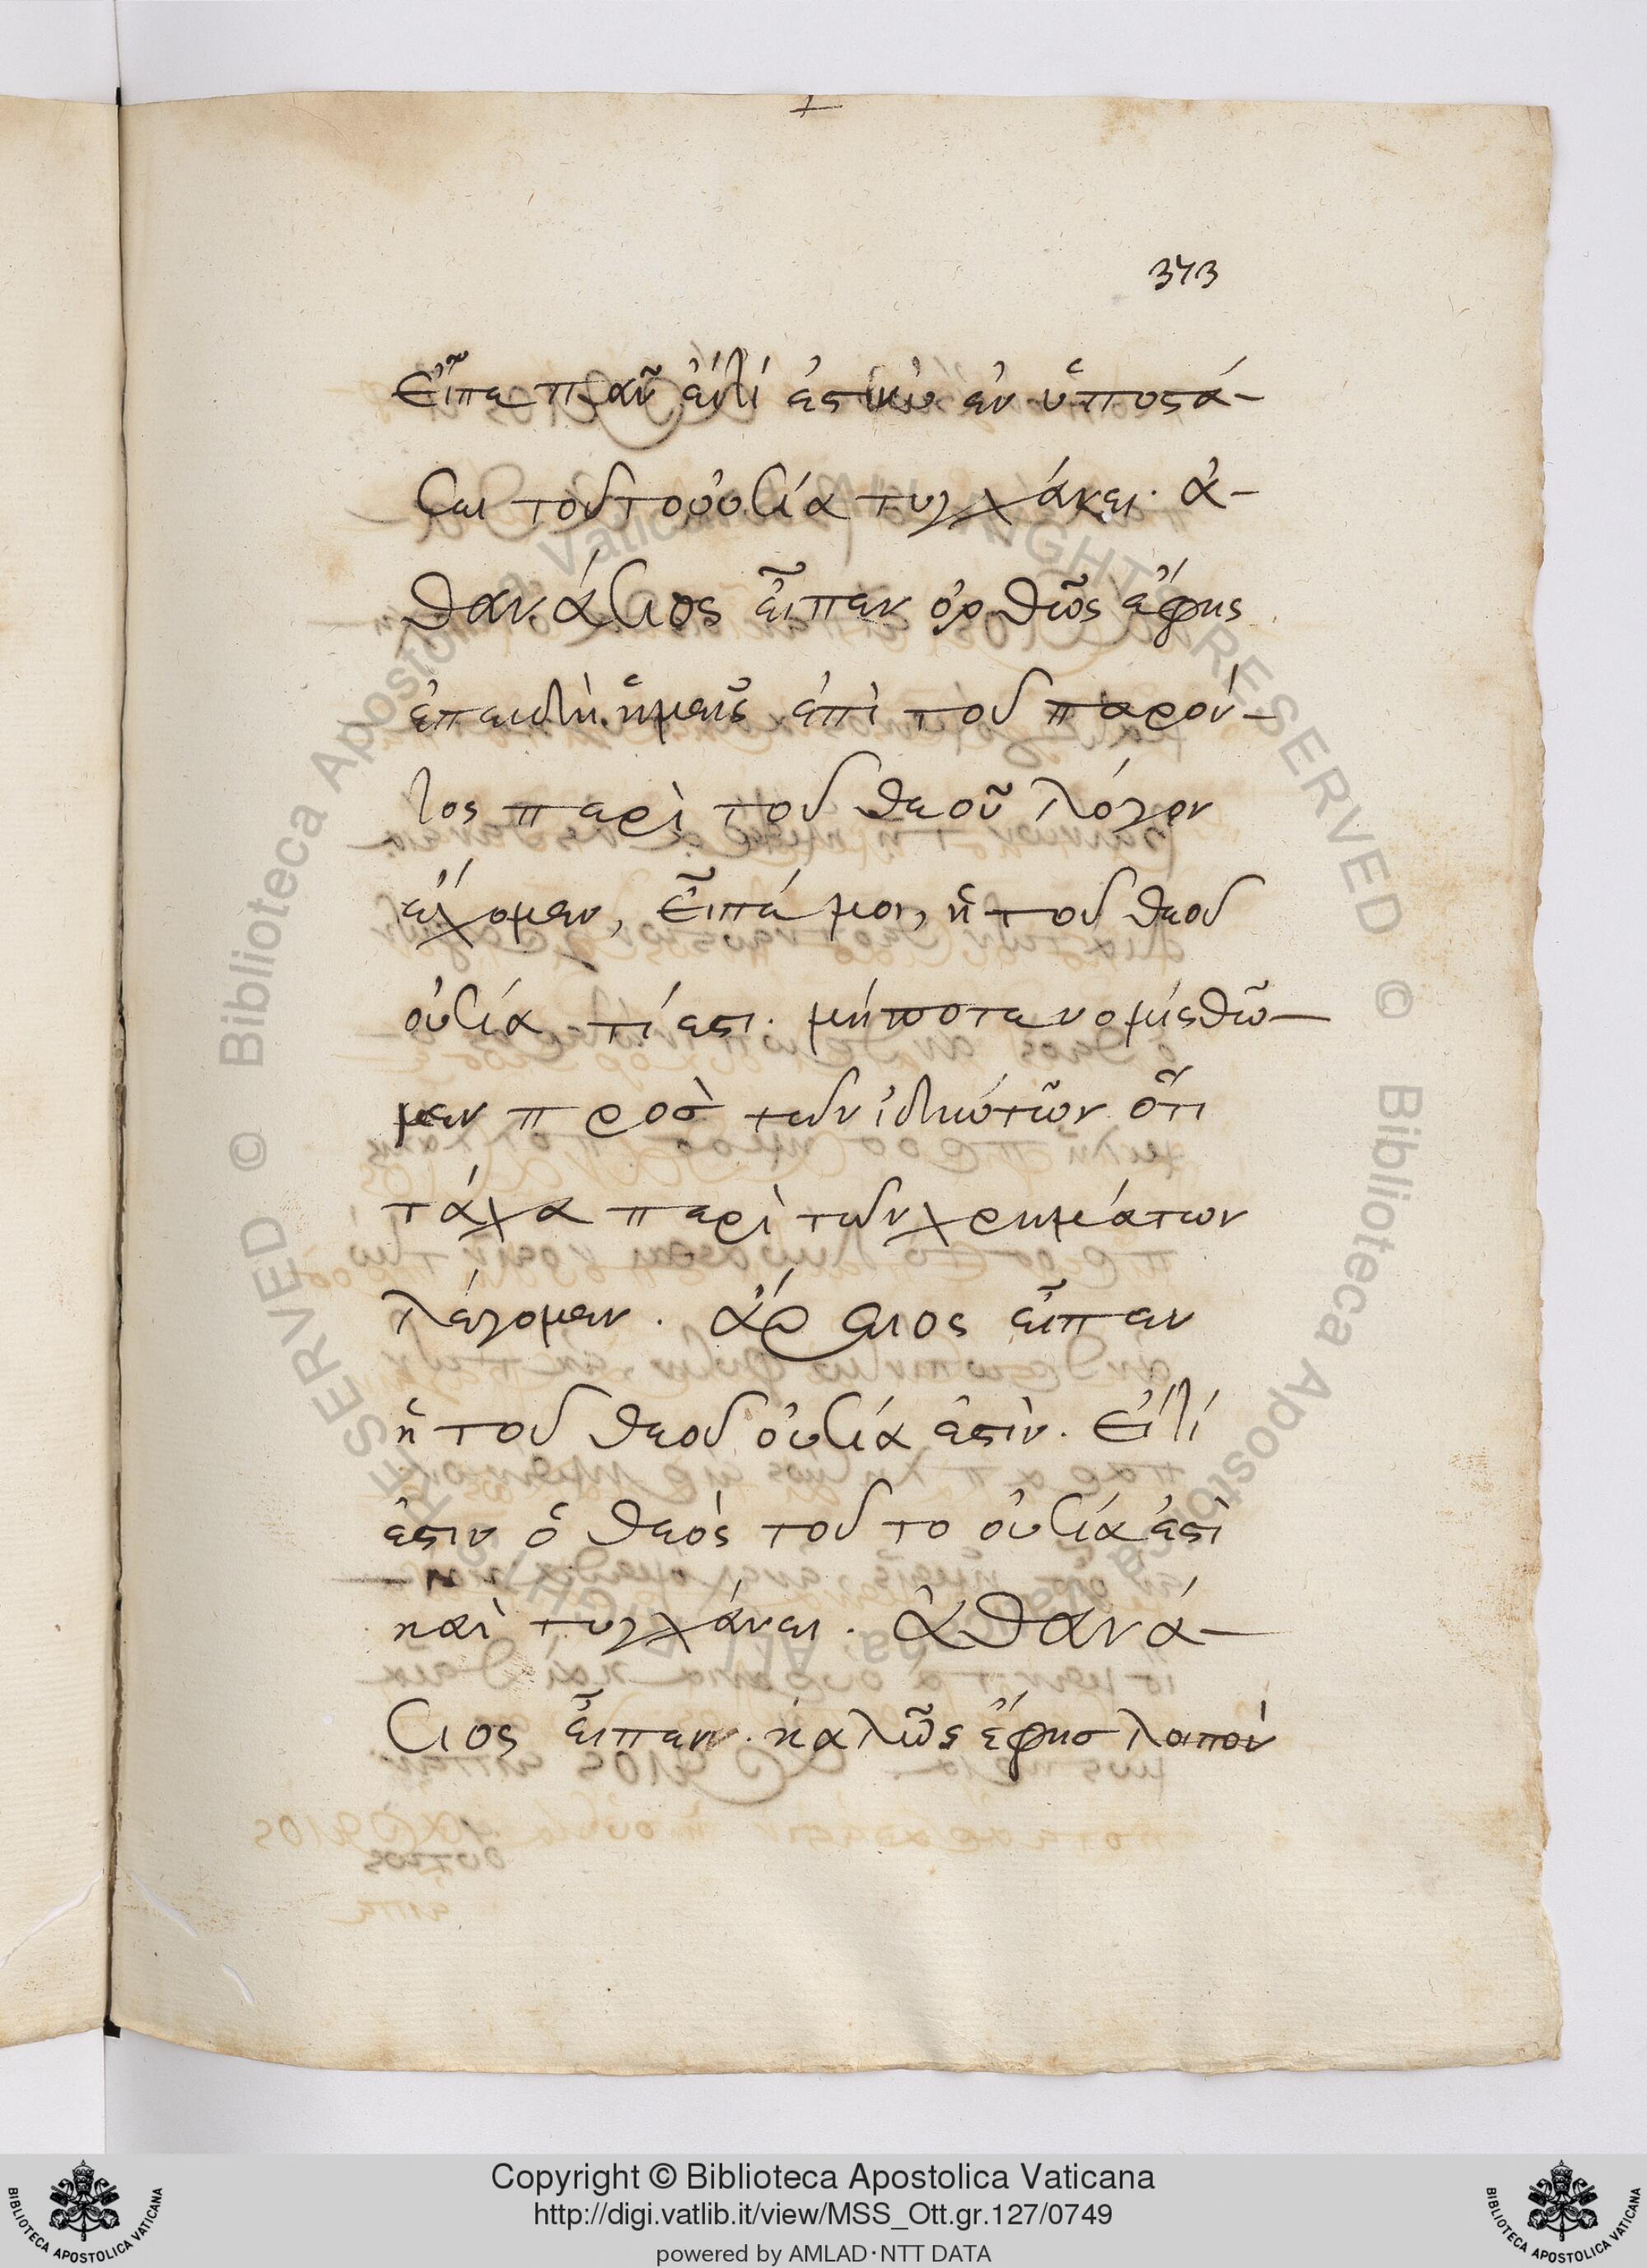 373
εἶπε πᾶν εἴ τί ἐστὶν ἐν ὑποστά-
σει τοῦτο οὐσία τυγχάνει. ἀ-
θανάσιος εἶπεν ὀρθῶς ἔφης
ἐπειδὴ ἡμεῖς ἐπὶ τοῦ παρόν-
τος περὶ τοῦ θεοῦ λόγον
ἔχομεν, εἶπέ μοι, ἡ τοῦ θεοῦ
οὐσία τί ἐστι. μήποτε νομισθῶ-
μεν πρὸσ τῶν ἰδιώτῶν ὅτι
τάχα περὶ τῶν χρημάτων
λέγομεν. ἄρειος εἶπεν
ἡ τοῦ θεοῦ οὐσία ἐστὶν. εἴ τί
ἐστιν ὁ θεὸς τοῦτο οὐσία ἐστὶ
καὶ τυγχάνει. ἀθανά-
σιος εἶπεν. καλῶς ἔφησ λοιπὸν
Copyright © Biblioteca Apostolica Vaticana
http://digi.vatlib.it/view/MSS_Ott.gr.127/0749
powered by AMLAD·NTT DATA
BIBLIOTECA APOSTOLICA VATICANA
BIBLIOTECA APOSTOLICA VATICANA